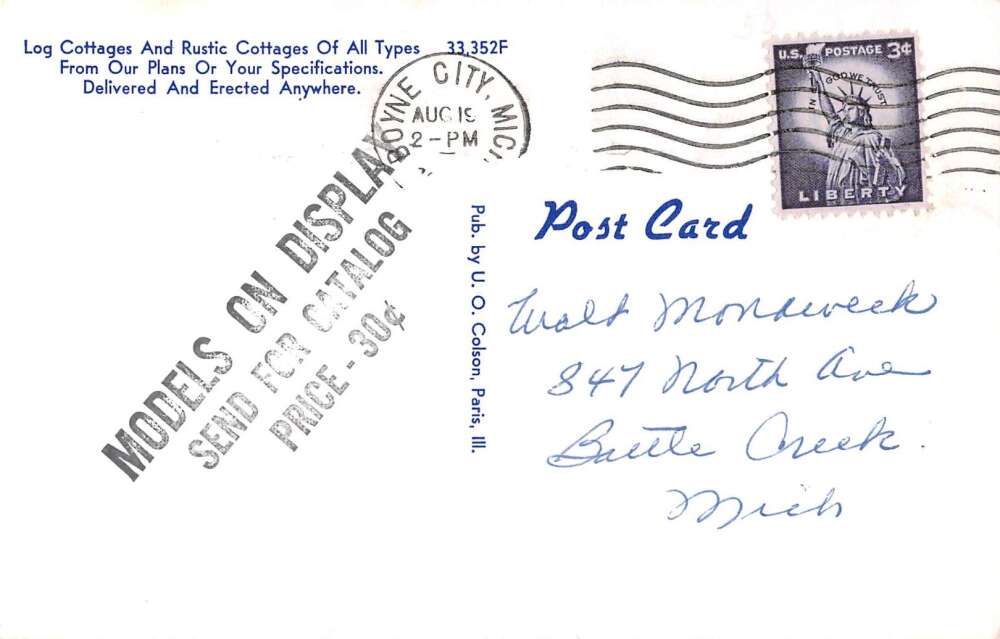 Log Cottages And Rustic Cottages Of All Types 33,352F
From Our Plans Or Your Specifications.
Delivered And Erected Anywhere.
BOYNE CITY, MICH
AUG 19
2-PM
U.S. POSTAGE 3¢
IN GOD WE TRUST
LIBERTY
MODELS ON DISPLAY
SEND FOR CATALOG
PRICE-30¢
Pub. by U. O. Colson, Paris, Ill.
Post Card
Walt
847 North Ave
Battle Creek.
Mich